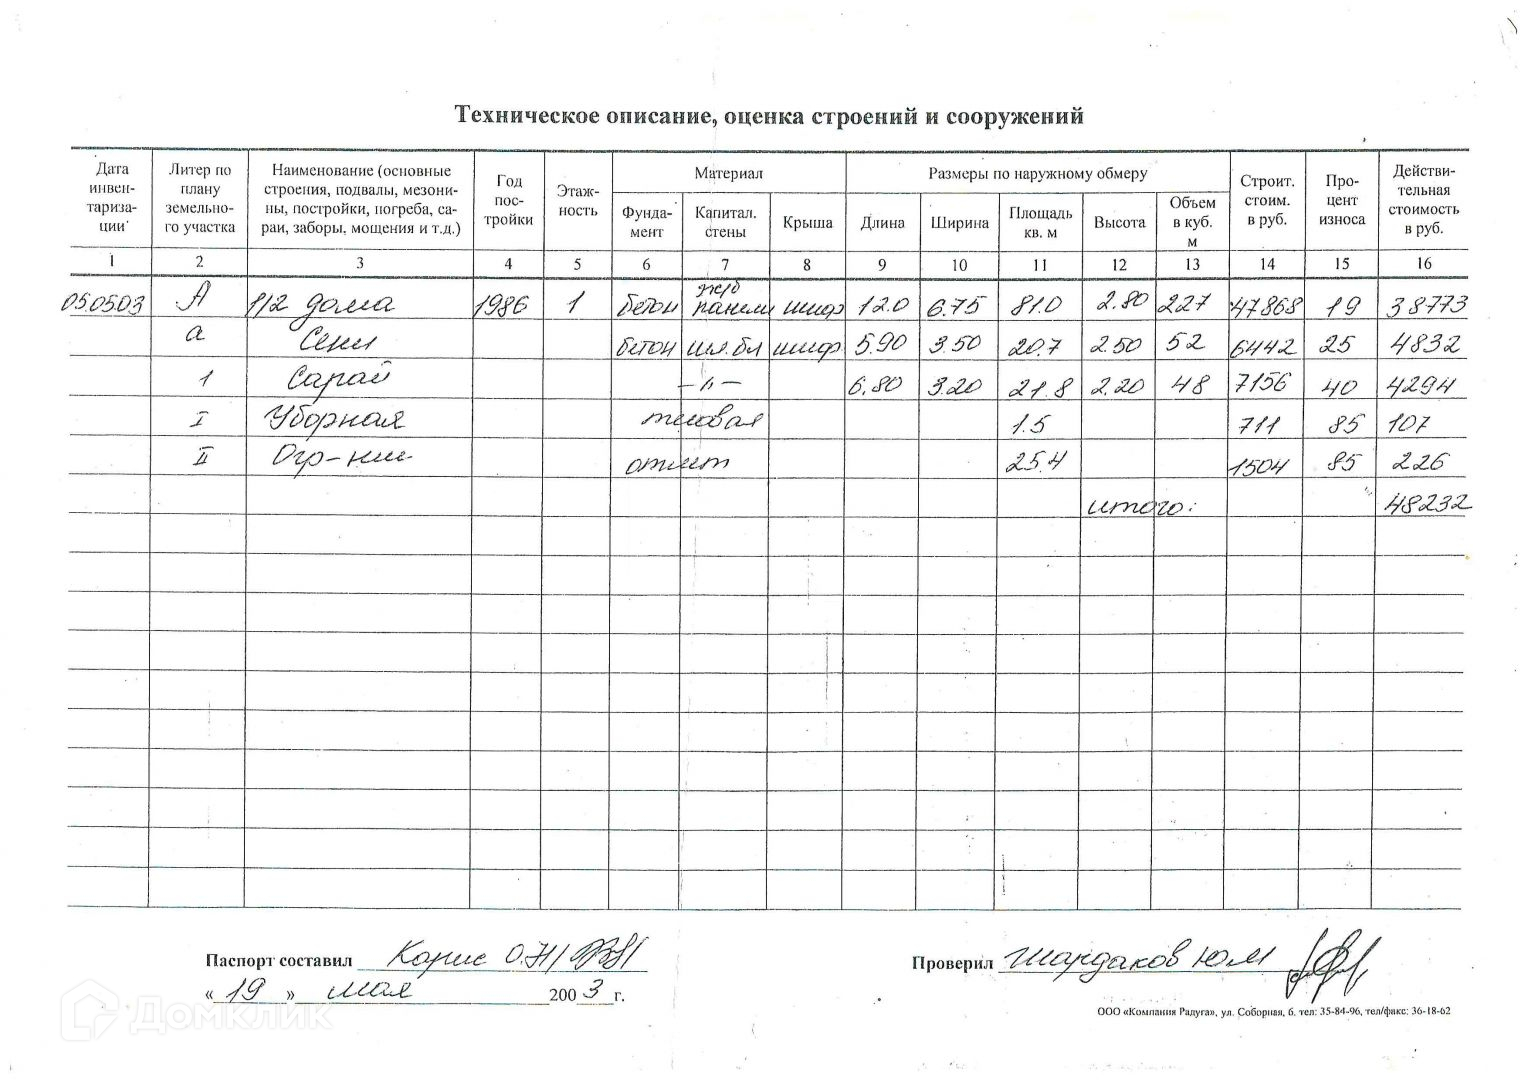 Техническое описание, оценка строений и сооружений
Дата инвен-тариза-ции
Литер по плану земельно-го участка
Наименование (основные строения, подвалы, мезони-ны, постройки, погреба, са-раи, заборы, мощения и т.д.)
Год пос-тройки
Этаж-ность
Материал
Фунда-мент
Капитал. стены
Крыша
Размеры по наружному обмеру
Длина
Ширина
Площадь кв. м
Высота
Объем в куб. м
Строит. стоим. в руб.
Про-цент износа
Действи-тельная стоимость в руб.
1 2 3 4 5 6 7 8 9 10 11 12 13 14 15 16
05.05.03 А 1/2 дома 1986 1 бетон ж/б панели шиф 12.0 6.75 81.0 2.80 227 47868 19 38773
а Сени бетон шл.бл шиф 5.90 3.50 20.7 2.50 52 6442 25 4832
1 Сарай –"– 6.80 3.20 21.8 2.20 48 7156 40 4294
I Уборная тесовая 1.5 711 85 107
II Огр-ние 25.4 1504 85 226
итого: 48232
Паспорт составил Карис О.Н
«19» мая 2003 г.
Проверил Шардаков Ю М
ООО «Компания Радуга», ул. Соборная, 6. тел: 35-84-96, тел/факс: 36-18-62
Домклик